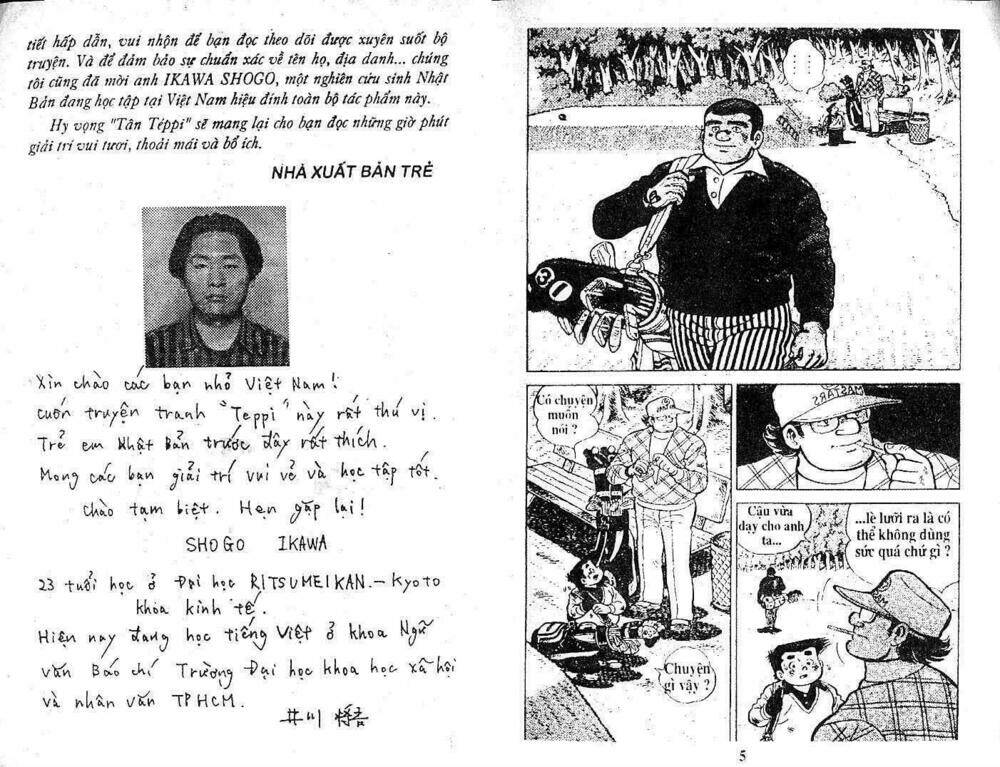 tiết hấp dẫn, vui nhộn để bạn đọc theo dõi được xuyên suốt bộ
truyện. Và để đảm bảo sự chuẩn xác về tên họ, địa danh... chúng
tôi cũng đã mời anh IKAWA SHOGO, một nghiên cứu sinh Nhật
Bản đang học tập tại Việt Nam hiệu đính toàn bộ tác phẩm này.
Hy vọng "Tân Téppi" sẽ mang lại cho bạn đọc những giờ phút
giải trí vui tươi, thoải mái và bổ ích.
NHÀ XUẤT BẢN TRẺ
Xin chào các bạn nhỏ Việt Nam!
cuốn truyện tranh "Teppi" này rất thú vị.
Trẻ em Nhật Bản trước đây rất thích.
Mong các bạn giải trí vui vẻ và học tập tốt.
chào tạm biệt. Hẹn gặp lại!
SHOGO IKAWA
23 tuổi học ở Đại học RITSUMEIKAN.-Kyoto
khoa kinh tế.
Hiện nay đang học tiếng Việt ở khoa Ngữ
văn Báo chí Trường Đại học khoa học xã hội
và nhân văn TPHCM.
井川
......
301
Có chuyện
muốn
nói ?
Chuyện
gì vậy ?
MASTARS
Cậu vừa
dạy cho anh
ta...
...lè lưỡi ra là có
thể không dùng
sức quá chứ gì ?
5